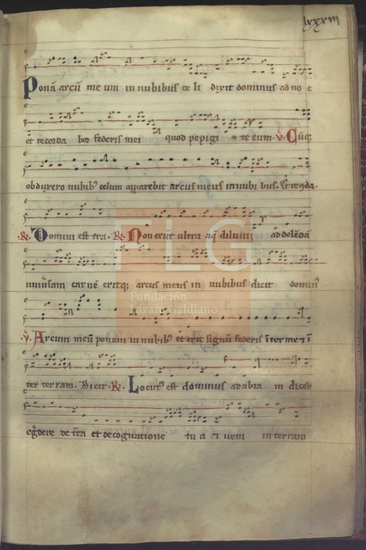 lxxxiii
Ponā arcū meum in nubibus ce li dixit dominus ad no e
et recorda bor federis mei quod pepigi te cum. ℣. Cūq;
obduxero nubibꝰ celum apparebit arcus meus in nubi bus. Et recorda.
℟. Domini est tra. ℟. Non erūt ultra aq̄ diluvii ad delēdā
carnē eritq; arcus meus in nubibus dicit dominꝰ
℣. Arcum meū ponam in nubibꝰ et erit signū federis īter me ⁊ ī
ter terram. Dicit. ℟. Locutꝰ est dominus ad abraham dicēs
egredere de tra et de cognatione tu a ⁊ veni in terram
FLG
Fundación
Lázaro Galdiano